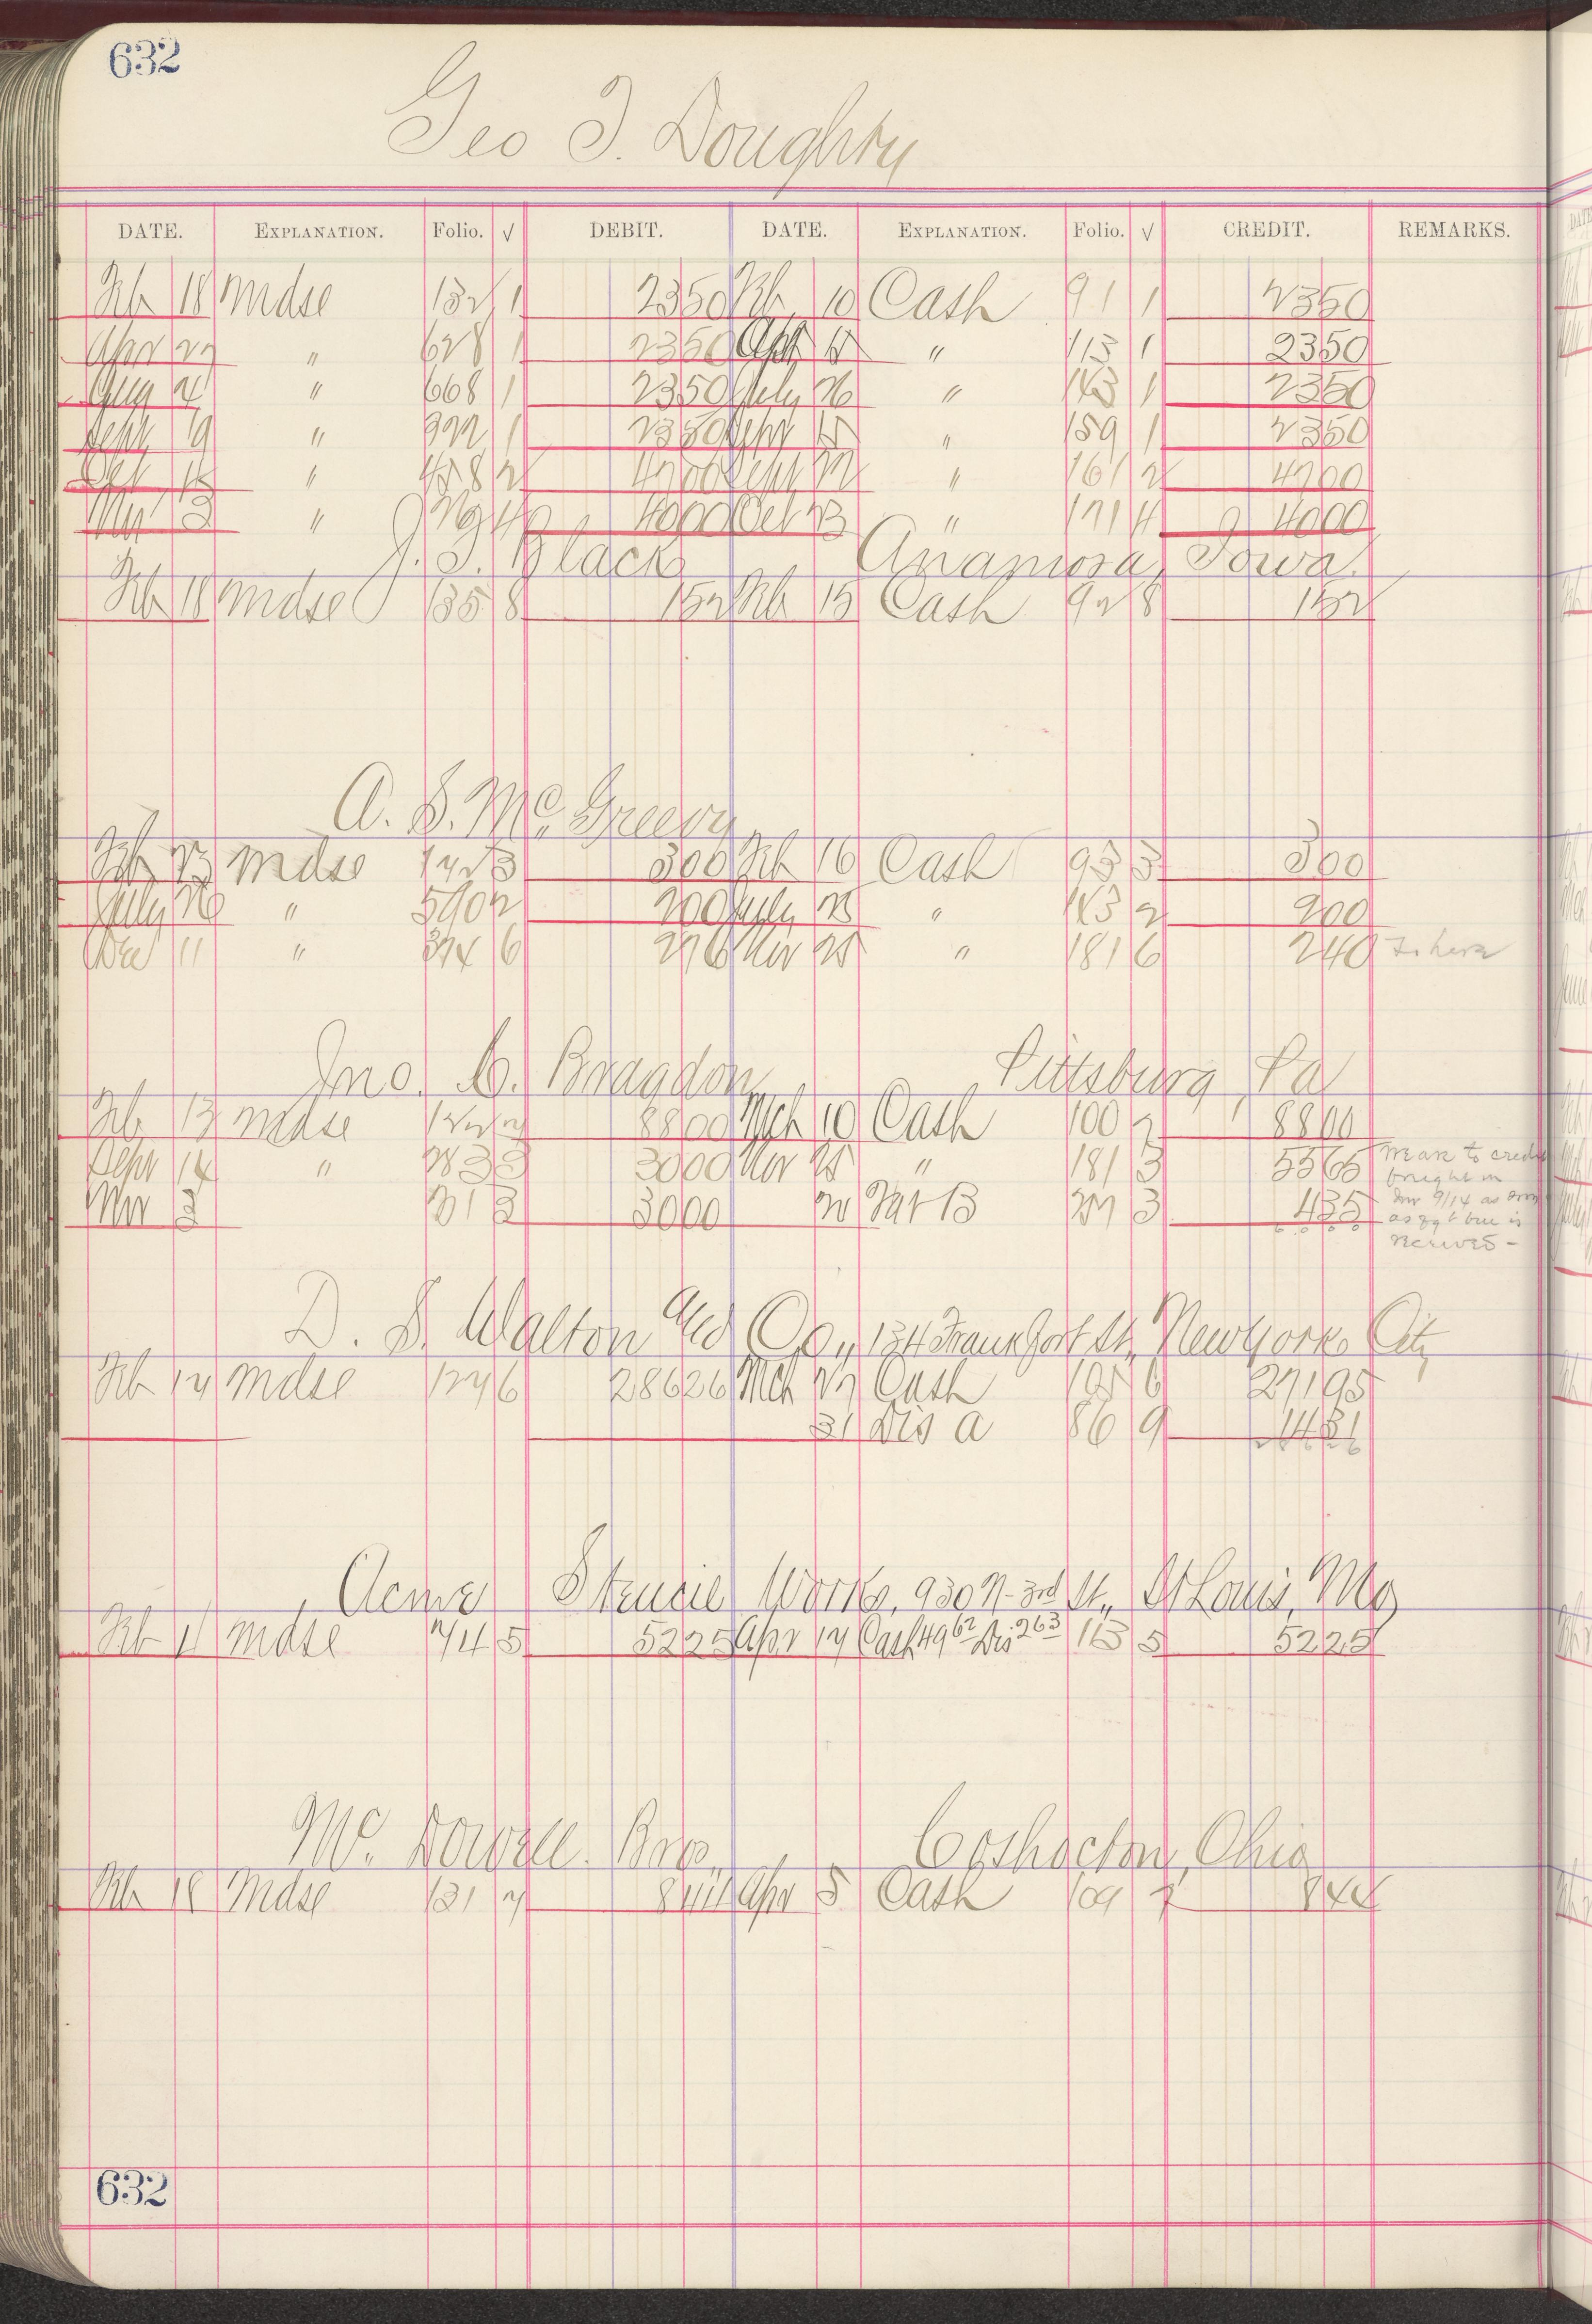 632
Geo T. Doughty
DATE. EXPLANATION. Folio. √ DEBIT. DATE. EXPLANATION. Folio. √ CREDIT. REMARKS.
Feb 18 Mdse 132 1 2350 Feb 10 Cash 91 1 2350
Apr 27 " 628 1 2350 Apr 15 " 113 1 2350
Aug 4 " 668 1 2350 July 26 " 143 1 2350
Sept 19 " 322 1 2350 Sept 15 " 159 1 2350
Oct 15 " 458 2 4700 Sept 22 " 161 2 4700
Nov 3 " 4 4000 Oct 23 " 171 4 4000
J. T. Black Anamosa, Iowa.
Feb 18 Mdse 135 8 152 Feb 15 Cash 92 8 152
A. S. McGreevy
Feb 13 Mdse 122 3 300 Feb 16 Cash 93 3 300
July 26 " 590 2 200 July 25 " 143 2 200
Dec 11 " 374 6 276 Nov 25 " 181 6 240
Jno. C. Bragdon Pittsburg, Pa
Feb 13 Mdse 122 7 8800 Mch 10 Cash 100 7 8800
Sept 14 " 283 3 3000 Nov 25 " 181 3 5565
Nov 3 31 3 3000 20 Frt B 227 3 435
We are to credit
freight on
Inv 9/14 as soon
as frgt bill is
received -
D. S. Walton and Co., 134 Frankfort St., New York City
Feb 14 Mdse 124 6 28626 Mch 27 Cash 105 6 27195
31 Dis a 86 9 1431
Acme Stencil Works, 930 N-3rd St., St Louis, Mo
Feb 1 Mdse 74 5 5225 Apr 14 Cash 49 62 Dis 2 63 113 5 5225
McDowell Bros. Coshocton, Ohio
Feb 18 Mdse 131 7 844 Apr 5 Cash 109 7 844
632